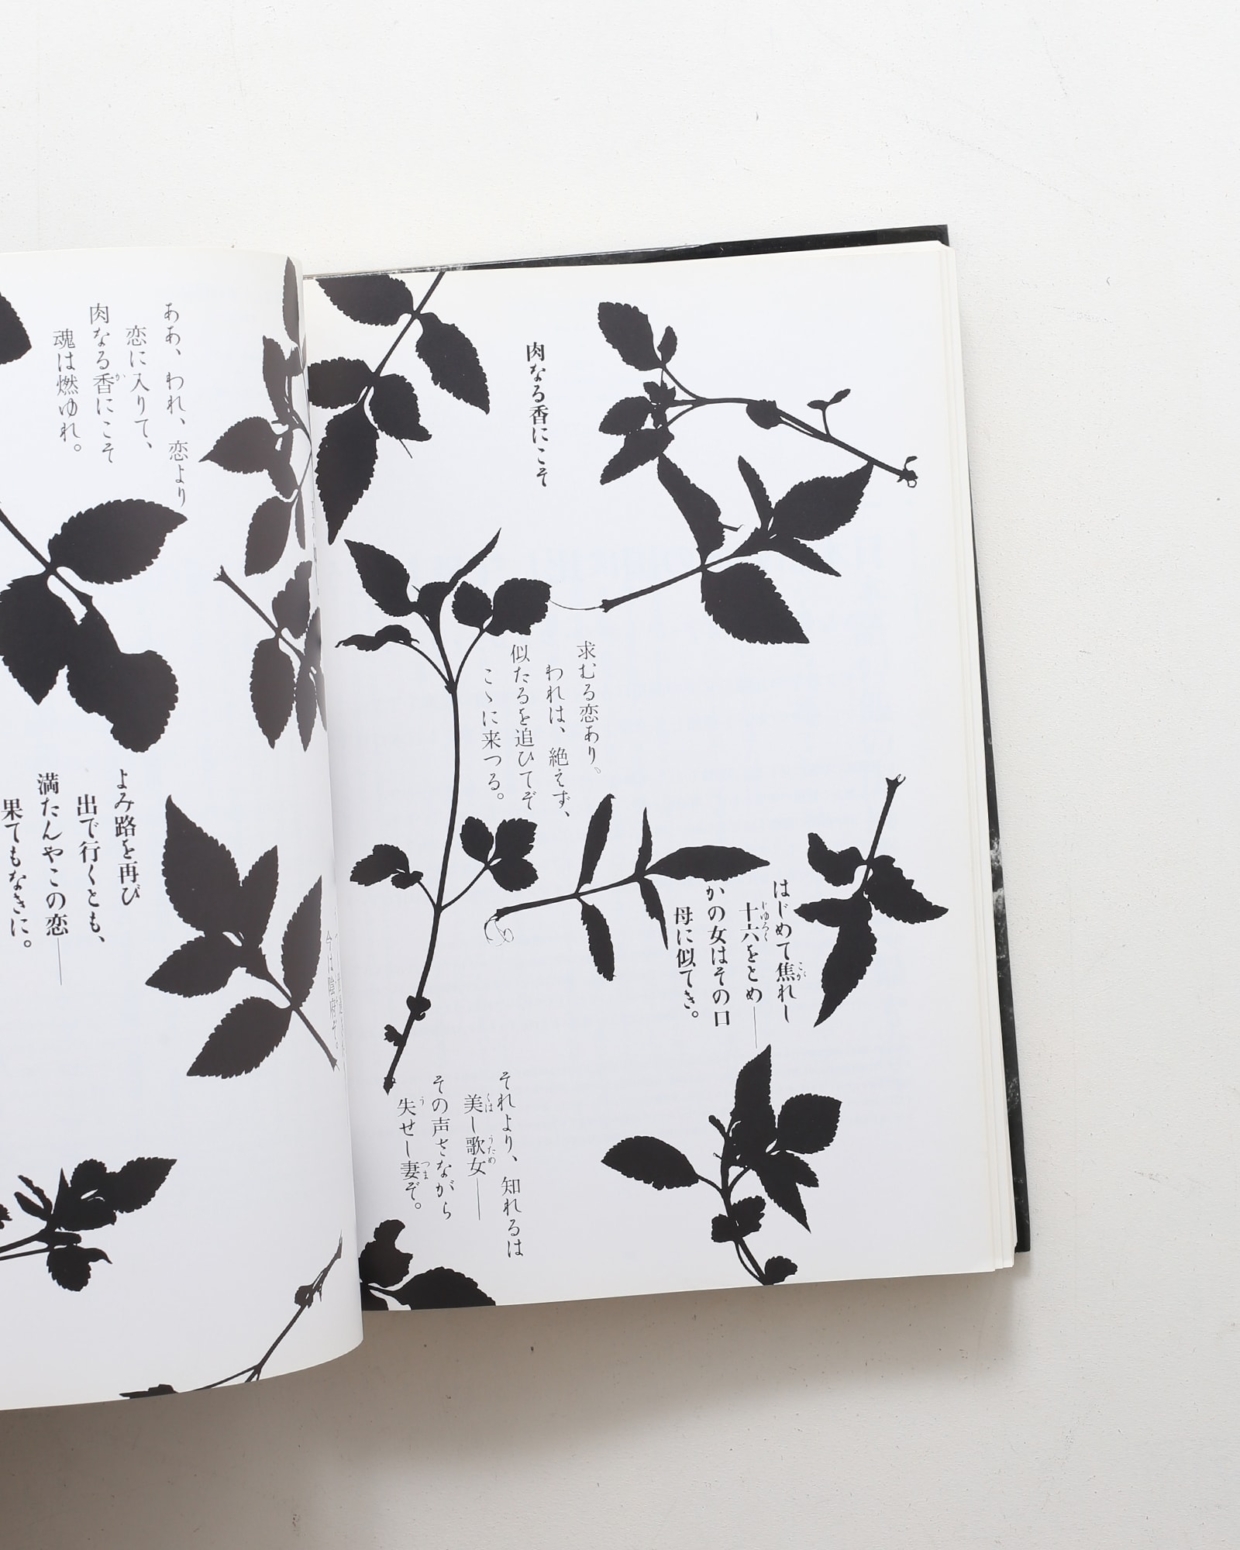 肉なる香にこそ
求むる恋あり。
われは、絶えず、
似たるを追ひてぞ
こゝに来つる。
はじめて焦れし
十六をとめ――
かの女はその口
母に似てき。
それより、知れるは
美し歌女――
その声さながら
失せし妻ぞ。
ああ、われ、恋より
恋に入りて、
肉なる香にこそ
魂は燃ゆれ。
よみ路を再び
出で行くとも、
満たんやこの恋――
果てもなきに。